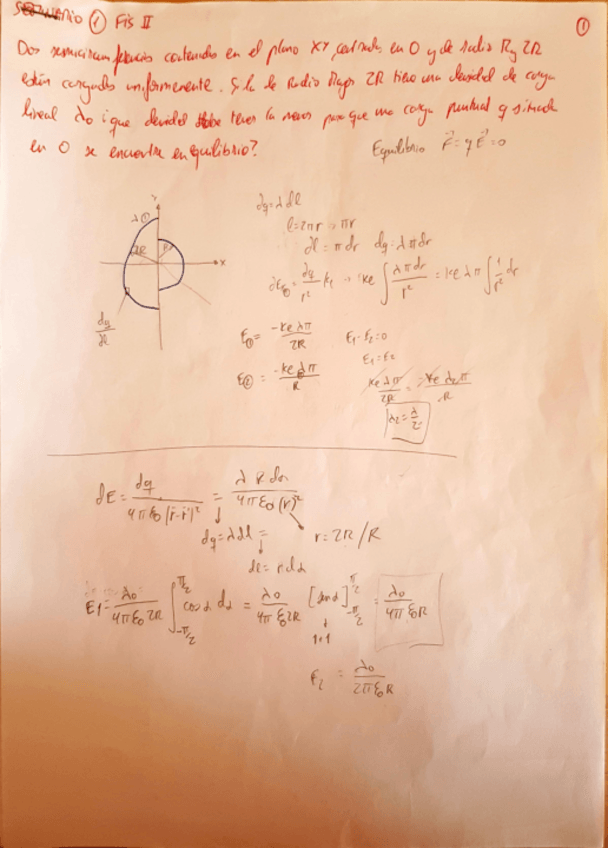 SEMINARIO ① FIS II
①
Dos semicircunferencias contenidas en el plano XY, centradas en O y de radio R y 2R
están cargadas uniformemente. Si la de Radio Mayor 2R tiene una densidad de carga
lineal λ₀ ¿que densidad debe tener la menor para que una carga puntual q situada
en O se encuentre en equilibrio?
Equilibrio F⃗ = qE⃗ = 0
Y
λ⊕
2R
R
X
dq
dl
dq = λdl
l = 2πr → πr
dl = πdr dq = λπdr
= ke λπ ∫ 1/r² dr
E① = -ke λπ / 2R
E1 - E2 = 0
E1 = E2
E② = -ke λπ / R
ke λπ / 2R = -ke λ₂π / R
λ₂ = λ/2
dE = dq / 4πε₀(r-r')² = λ R dα / 4πε₀(r)²
dq = λdl =
r = 2R/R
dl = r dα
E1 = λ₀ / 4πε₀2R ∫ cosα dα = λ₀ / 4πε₀2R [senα] = λ₀ / 4πε₀R
1+1
E₂ = λ₀ / 2πε₀R